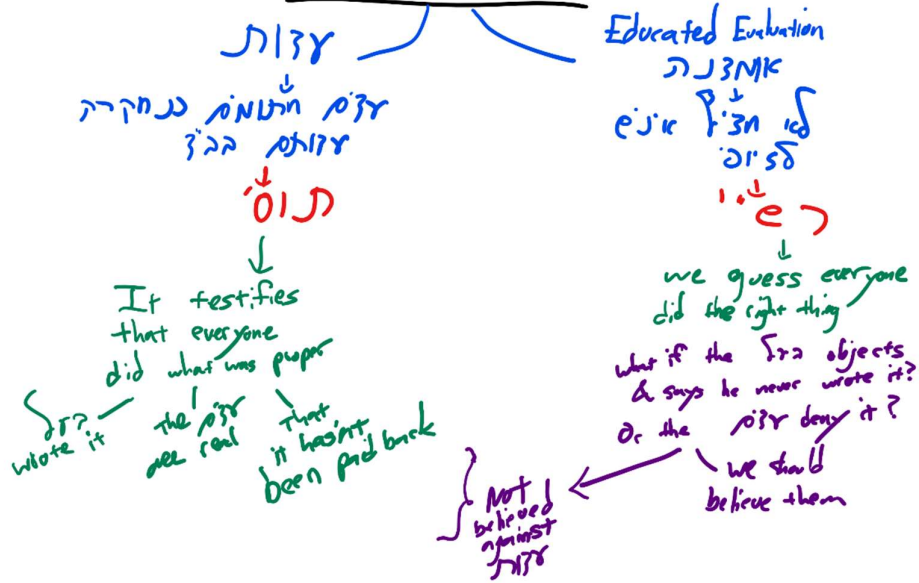 עדות
עדים חתומים כנחקרה
עדותם בב״ד
תוס׳
It testifies
that everyone
did what was proper
wrote it
the עדים
are real
that
it hasn't
been paid back
Educated Evaluation
אומדנה
לא חציף אינש
לזיופי
רש״י
we guess everyone
did the right thing
what if the objects
& says he never wrote it?
Or the עדים deny it?
we should
believe them
Not
believed
against
עדות